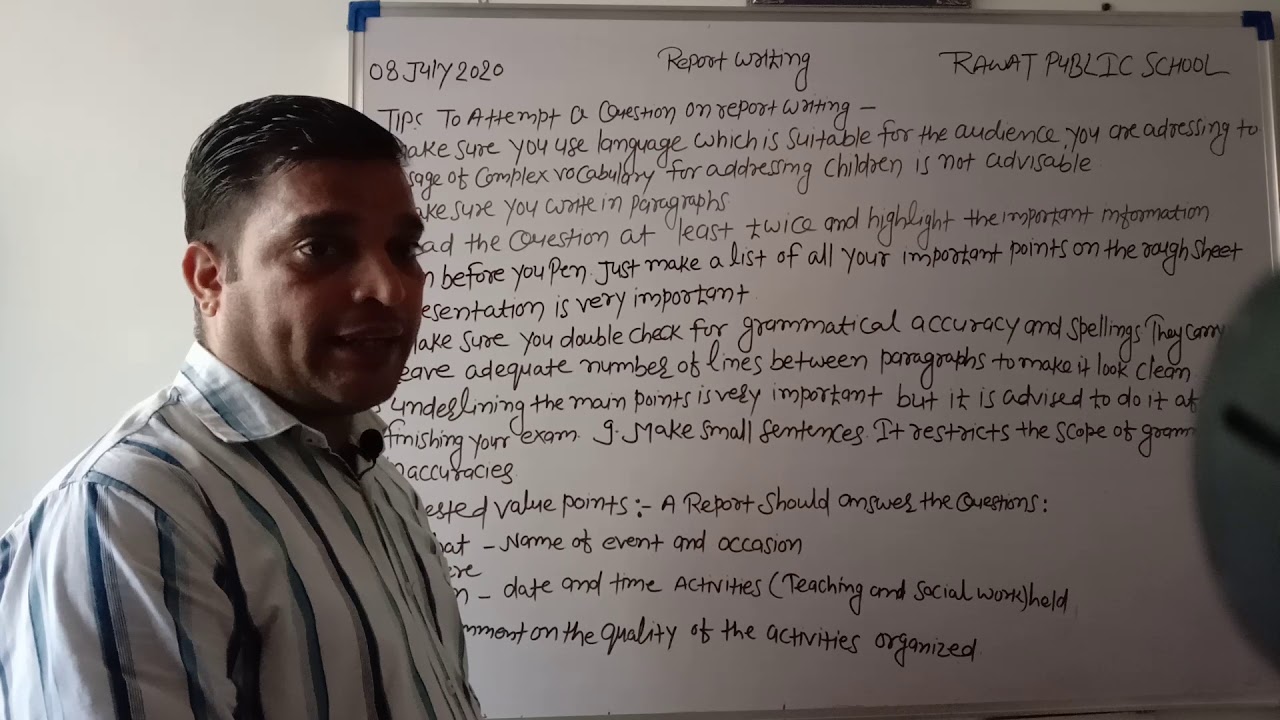 08 July 2020 Report Writing RAWAT PUBLIC SCHOOL
TIPS To Attempt a Question on report writing –
ake sure you use language which is suitable for the audience, you are adressing to
sage of Complex vocabulary for addressing children is not advisable
ake sure you write in paragraphs
ad the Question at least twice and highlight the important information
n before you Pen. Just make a list of all your important points on the rough sheet
esentation is very important
ake sure you double check for grammatical accuracy and spellings They carry
eave adequate number of lines between paragraphs to make it look clean
underlining the main points is very important but it is advised to do it at
finishing your exam. 9. Make small sentences. It restricts the scope of gramm
naccuracies
ested value points :- A Report Should answer the Questions :
hat - Name of event and occasion
ere
n - date and time Activities (Teaching and social work) held
mment on the quality of the activities organized